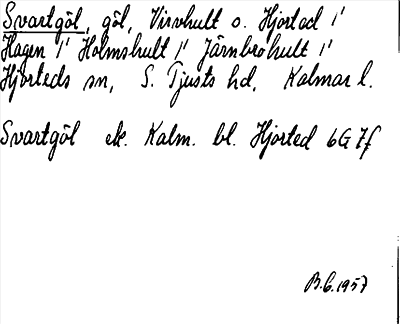 Svartgöl, göl, Virvhult o. Hjorted i/
Hagen i/ Holmshult i/ Järnbrohult i/
Hjorteds sn, S. Tjusts hd, Kalmar l.
Svartgöl ek. Kalm. bl. Hjorted 6G 7f
B.G. 1957